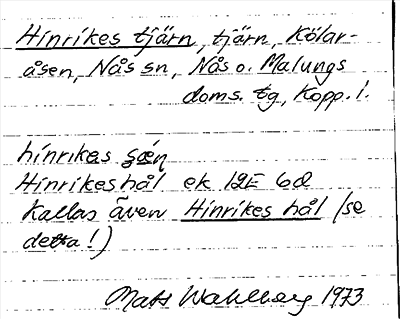 Hinrikes tjärn, tjärn, Kölar-
åsen, Nås sn, Nås o. Malungs
doms. tg, Kopp. l.
hinrikas
Hinrikeshål ek 12E 6d
Kallas även Hinrikes hål (se
detta!)
Mats Wahlberg 1973